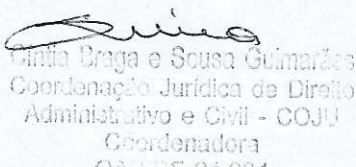 Cintia Braga e Sousa Guimarães
Coordenação Jurídica de Direito
Administrativo e Civil - COJU
Coordenadora